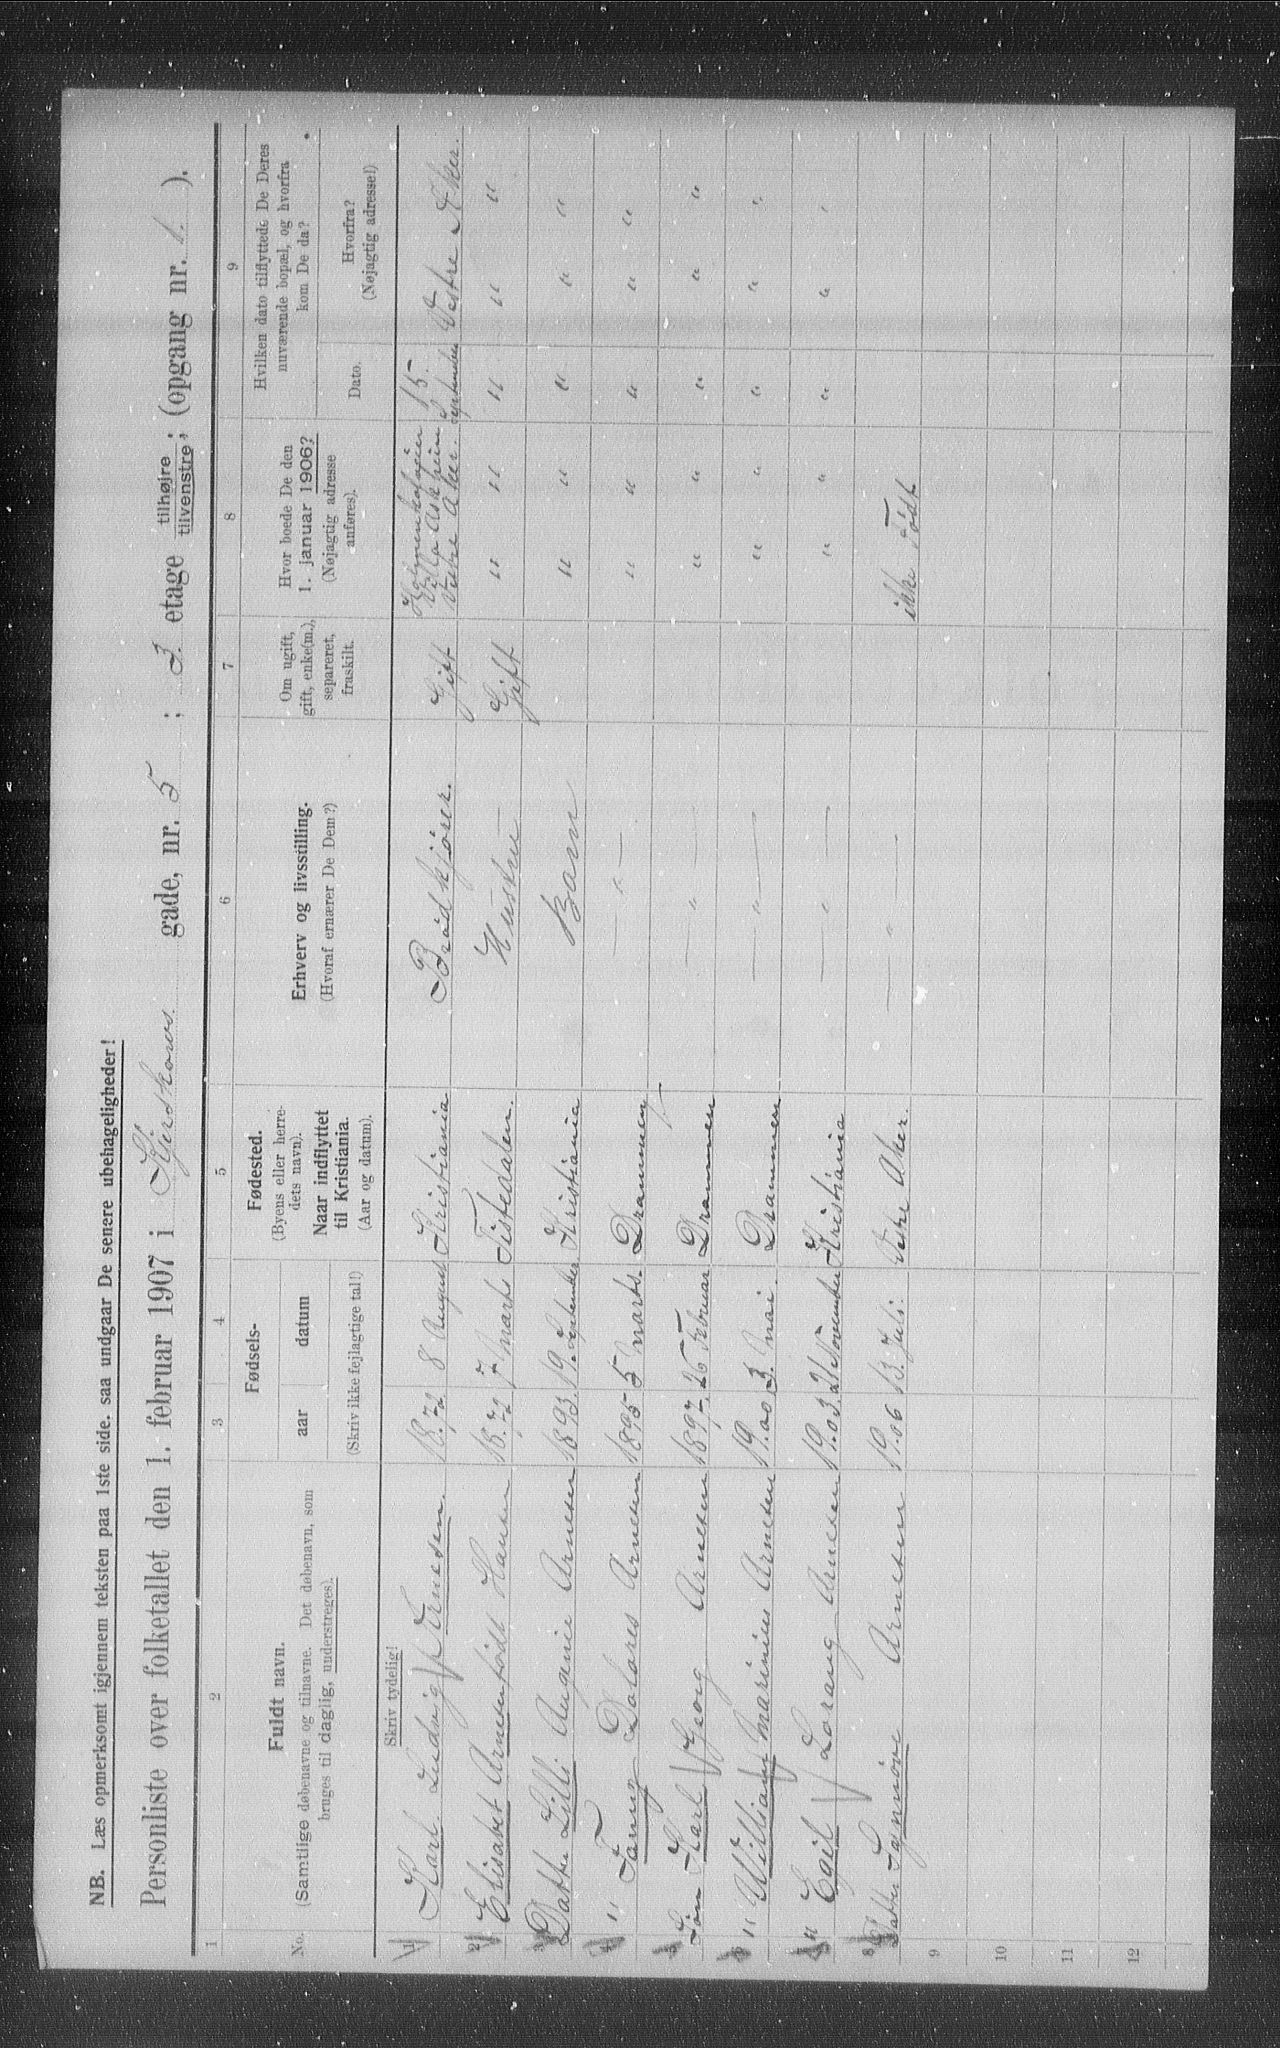 NB. Læs opmerksomt igjennem teksten paa 1ste side. saa undgaar De senere ubehageligheder!
Personliste over folketallet den 1. februar 1907 i gade, nr. 5 ; 3. etage tilhøjre tilvenstre; (opgang nr. 1. ).
1 2 3 4 5 6 7 8 9
No.
Fuldt navn.
(Samtlige døbenavne og tilnavne. Det døbenavn, som
bruges til daglig, understreges).
Skriv tydelig!
Fødsels-
aar datum
(Skriv ikke fejlagtige tal!)
Fødested.
(Byens eller herre-
dets navn).
Naar indflyttet
til Kristiania.
(Aar og datum).
Erhverv og livsstilling.
(Hvoraf ernærer De Dem?)
Om ugift,
gift, enke(m.),
separeret,
fraskilt.
Hvor boede De den
1. januar 1906?
(Nøjagtig adresse
anføres).
Hvilken dato tilflyttede De Deres
nuværende bopæl, og hvorfra
kom De da?
Dato.
Hvorfra?
(Nøjagtig adresse!)
1 Karl Ludvig Arnesen. 18.72 8 August Kristiania Brødkjører. Gift Villa Askheim Vestre Aker. 15. September Vestre Aker.
2 Elisabet Arnesen født Hansen 18.72 7 Marts Tistedalen. Hustru Gift " " " " "
3 Datter Lilli. Augenie Arnesen 1893. 19. September Kristiania Barn " " " " "
4 " Fanny Dolores Arnesen 1895 5 Marts. Drammen — " — " " " " "
5 Søn Karl Georg Arnesen 1897. 26 Februar Drammen — " — " " " " "
6 " William Marinius Arnesen 19.00 3. Mai. Drammen — " — " " " " "
7 " Egil Lorang Arnesen 19.03. 21 November Kristiania — " — " " " " "
8 Datter Synnöve Arnesen 19.06 13. Juli. Vestre Aker. — " — ikke född
9
10
11
12